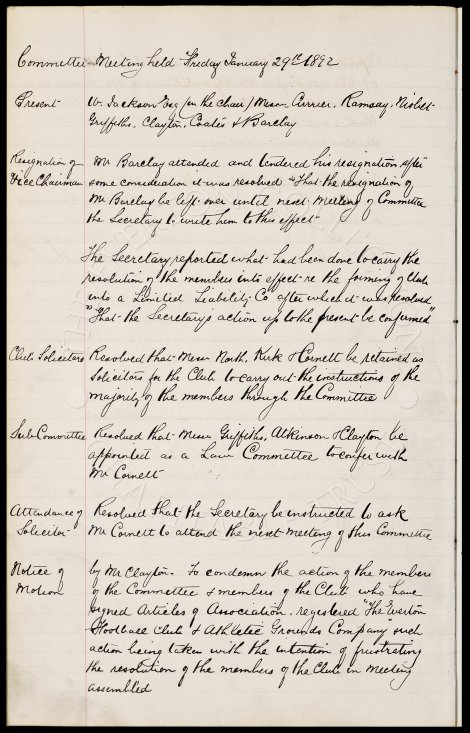 Committee Meeting held Friday January 29th 1892
Present W. Jackson Esq (in the chair) Messrs Currier, Ramsay, Nisbet
Griffiths, Clayton, Coates & Barclay
Resignation of Mr Barclay attended and tendered his resignation after
Vice Chairman some consideration it was resolved "That the resignation of
Mr Barclay be left over until next Meeting of Committee
the Secretary to write him to this effect
The Secretary reported what had been done to carry the
resolution of the members into effect re the forming of Club
into a Limited Liability Co after which it was resolved
"That the Secretary's action up to the present be confirmed"
Club Solicitors Resolved that Messrs North, Kirk & Cornett be retained as
Solicitors for the Club to carry out the instructions of the
majority of the members through the Committee
Sub Committee Resolved that Messrs Griffiths, Atkinson & Clayton be
appointed as a Law Committee to confer with
Mr Cornett
Attendance of Resolved that the Secretary be instructed to ask
Solicitor Mr Cornett to attend the next meeting of this Committee
Notice of by Mr Clayton. To condemn the action of the members
Motion of the Committee & members of the Club who have
signed Articles of Association, registered "The Everton
Football Club & Athletic Grounds Company" such
action being taken with the intention of frustrating
the resolution of the members of the Club in Meeting
assembled